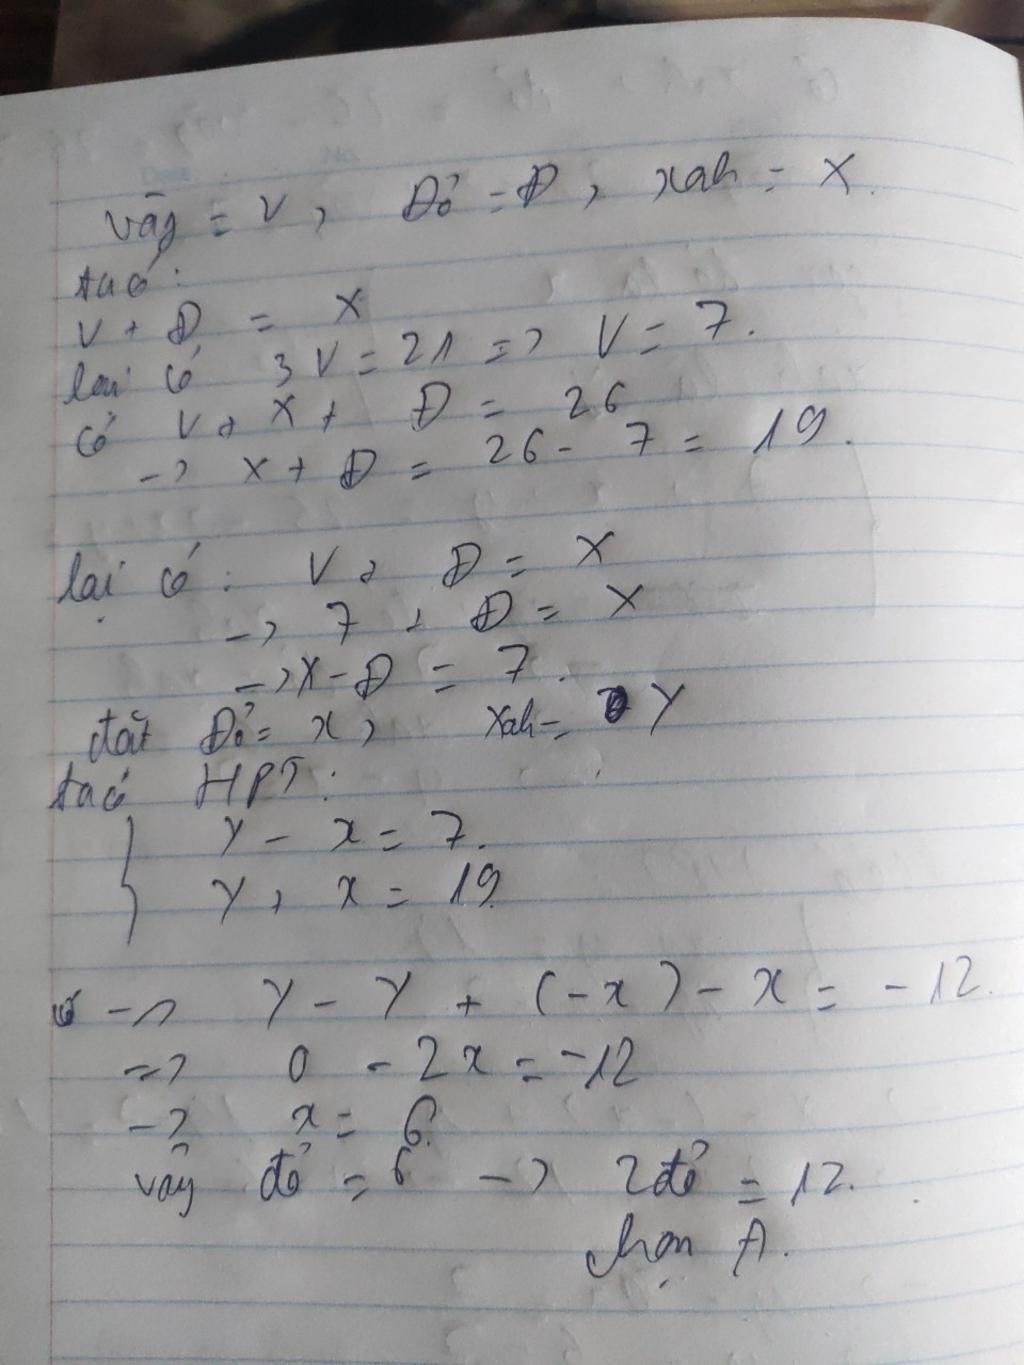 vàng = V, Đỏ = Đ, xah = X.
ta có:
V + Đ = X
lại có 3V = 21 => V = 7.
có V + X + Đ = 26
-> X + Đ = 26 - 7 = 19.
lại có: V + Đ = X
-> 7 + Đ = X
-> X - Đ = 7.
đặt Đỏ = x, Xah = Y
ta có HPT:
{ Y - x = 7.
Y + x = 19
-> Y - Y + (-x) - x = -12.
=> 0 - 2x = -12
-> x = 6.
vậy đỏ = 6 -> 2đỏ = 12.
chọn A.